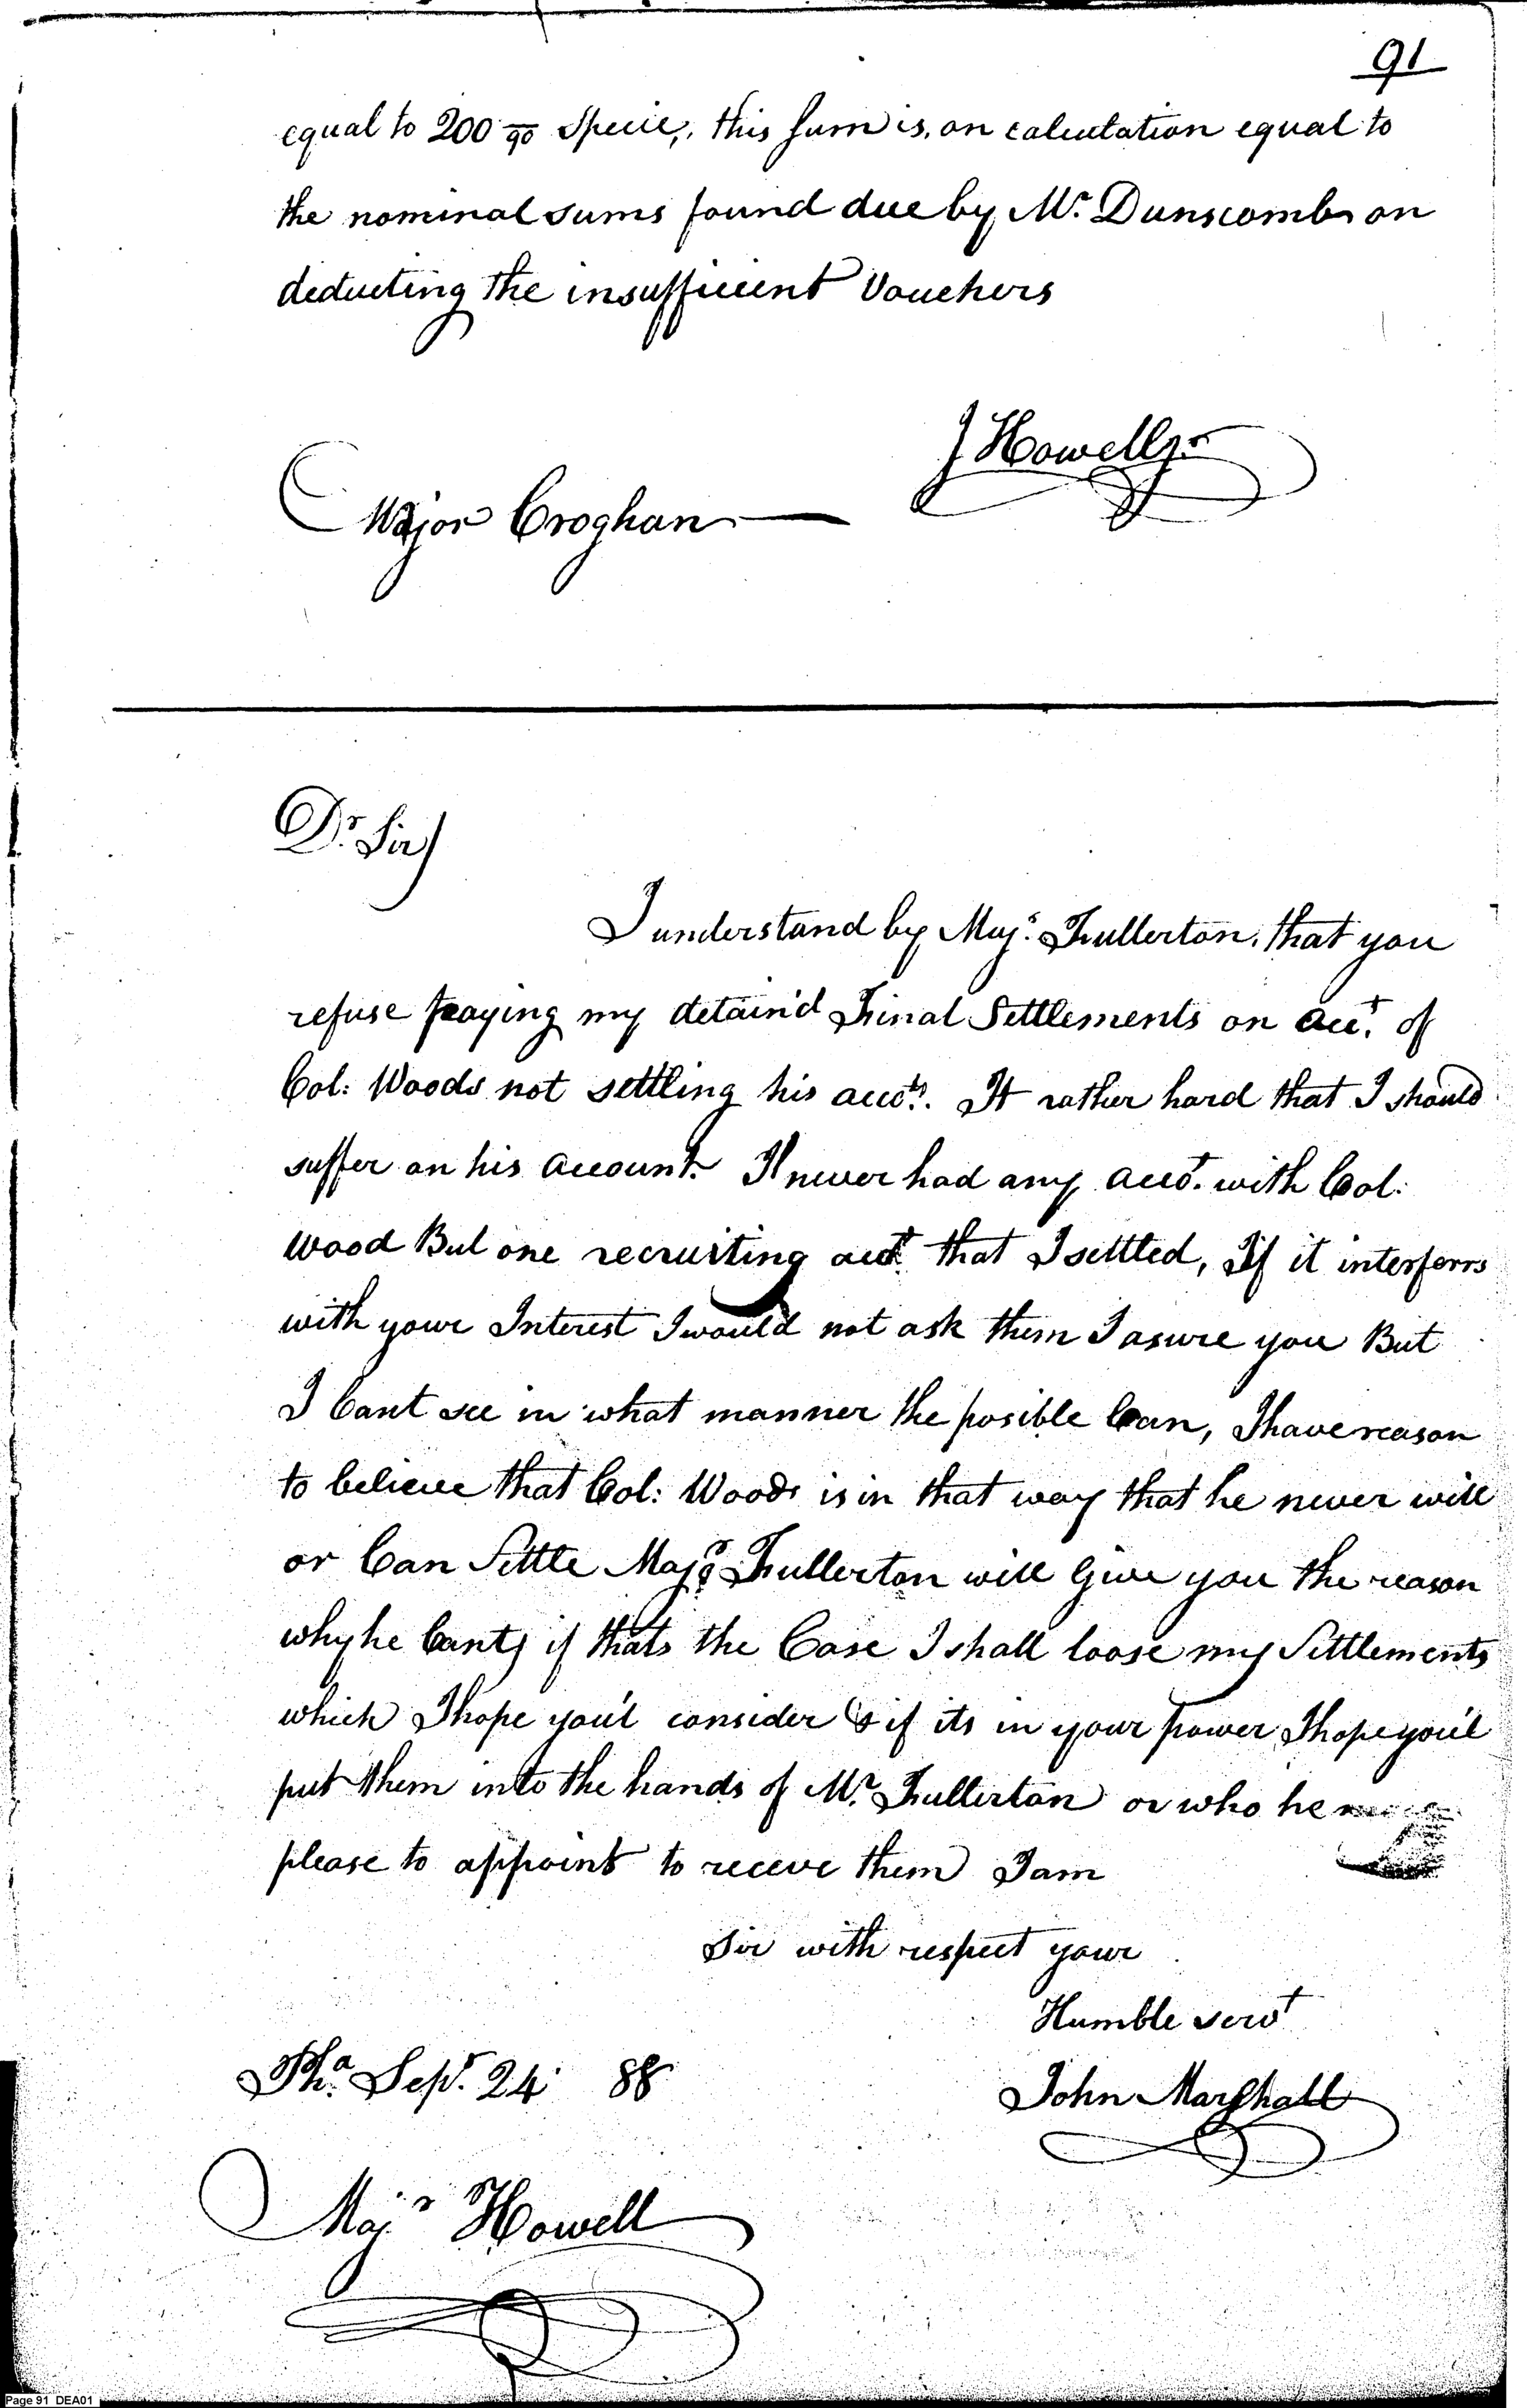 91
equal to 200 90 Specie, this sum is, on calculation equal to
the nominal sums found due by Mr. Dunscomb on
deducting the insufficient Vouchers
J Howell jr
Major Croghan
Dr. Sir
I understand by Majr. Fullerton, that you
refuse paying my detain'd Final Settlements on acct. of
Col: Woods not settling his accts. It rather hard that I should
suffer on his account. I never had any acct. with Col:
Wood But one recruiting acct. that I settled, If it interferrs
with your Interest I would not ask them I asure you But
I Cant see in what manner the posible Can, I have reason
to believe that Col: Woods is in that way that he never will
or Can Settle Majr. Fullerton will Give you the reason
why he Cant, if thats the Case I shall loose my Settlements
which I hope you'l consider & if its in your power I hope you'l
put them into the hands of Mr. Fullerton or who he
please to appoint to receve them I am
Sir with respect your
Humble servt
Pha. Sepr. 24 88
John Marshall
Majr Howell
Page 91 DEA01